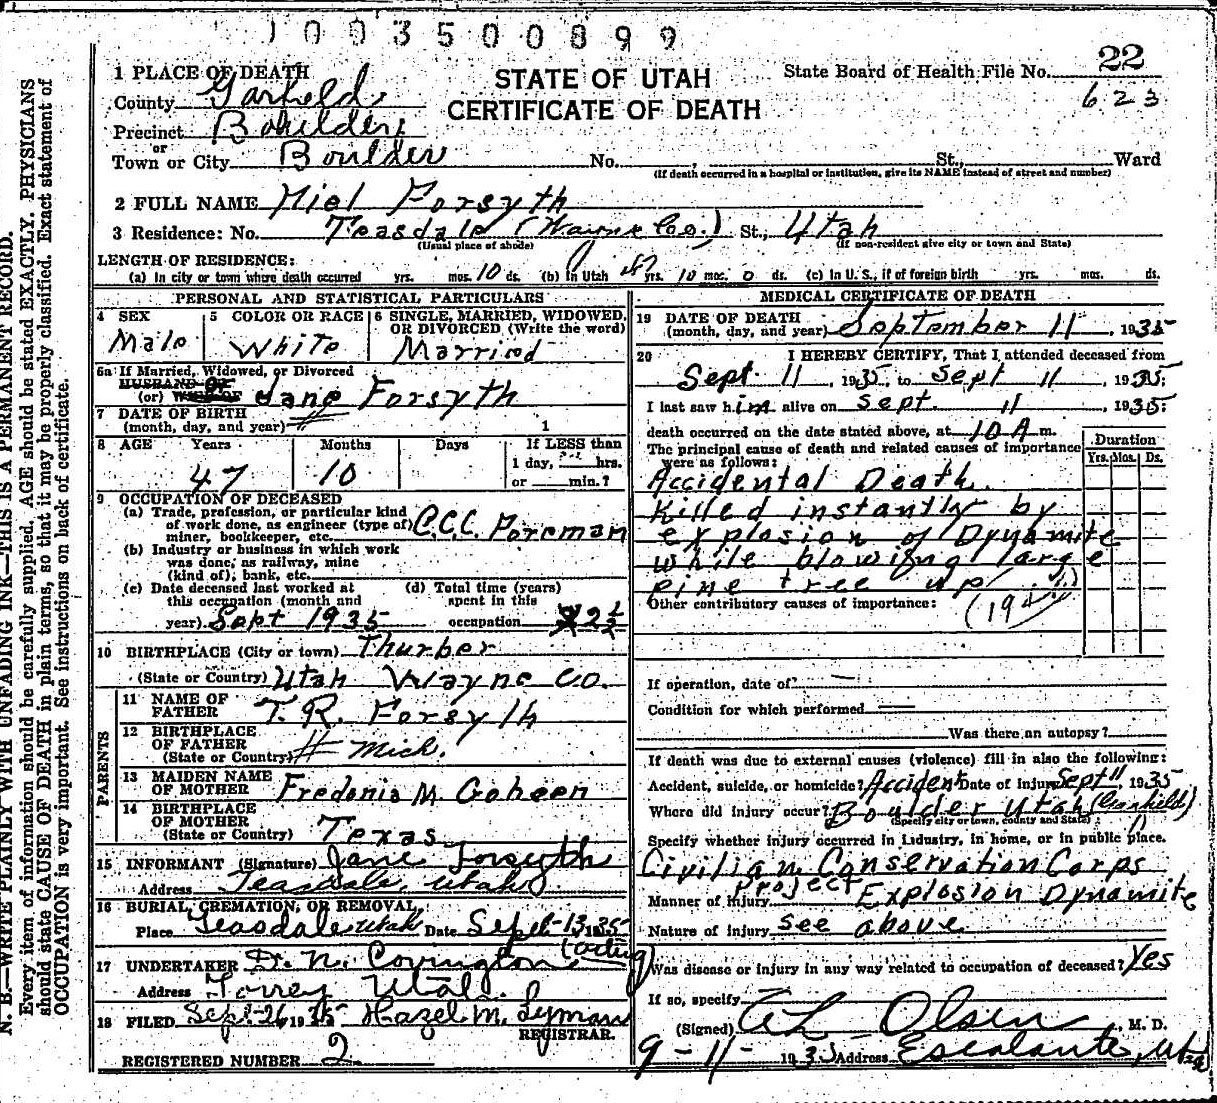 1003500899
N. B.—WRITE PLAINLY WITH UNFADING INK—THIS IS A PERMANENT RECORD.
Every item of information should be carefully supplied. AGE should be stated EXACTLY. PHYSICIANS
should state CAUSE OF DEATH in plain terms, so that it may be properly classified. Exact statement of
OCCUPATION is very important. See instructions on back of certificate.
STATE OF UTAH
CERTIFICATE OF DEATH
State Board of Health File No. 22
623
1 PLACE OF DEATH
County Garfield
Precinct Boulder
or
Town or City Boulder No. , St., Ward
(If death occurred in a hospital or institution, give its NAME instead of street and number)
2 FULL NAME Niel Forsyth
3 Residence: No. Teasdale (Wayne Co.) St., Utah
(Usual place of abode) (If non-resident give city or town and State)
LENGTH OF RESIDENCE:
(a) In city or town where death occurred yrs. mos. 10 ds. (b) In Utah 47 yrs. 10 mos. 0 ds. (c) In U. S., if of foreign birth yrs. mos. ds.
PERSONAL AND STATISTICAL PARTICULARS
4 SEX Male
5 COLOR OR RACE White
6 SINGLE, MARRIED, WIDOWED, OR DIVORCED (Write the word) Married
6a If Married, Widowed, or Divorced
HUSBAND OF
(or) WIFE OF Jane Forsyth
7 DATE OF BIRTH
(month, day, and year) 1
8 AGE Years Months Days If LESS than
47 10 1 day, hrs.
or min.?
9 OCCUPATION OF DECEASED
(a) Trade, profession, or particular kind
of work done, as engineer (type of)
miner, bookkeeper, etc. C.C.C. Foreman
(b) Industry or business in which work
was done, as railway, mine
(kind of); bank, etc.
(c) Date deceased last worked at
this occupation (month and
year) Sept 1935
(d) Total time (years)
spent in this
occupation 2½
10 BIRTHPLACE (City or town) Thurber
(State or Country) Utah Wayne Co.
PARENTS
11 NAME OF FATHER T. R. Forsyth
12 BIRTHPLACE OF FATHER
(State or Country) Mich.
13 MAIDEN NAME OF MOTHER Fredonia M. Goheen
14 BIRTHPLACE OF MOTHER
(State or Country) Texas
15 INFORMANT (Signature) Jane Forsyth
Address Teasdale, Utah
16 BURIAL, CREMATION, OR REMOVAL
Place Teasdale Utah Date Sept-13, 1935
17 UNDERTAKER D. N. Covington (acting)
Address Torrey Utah
18 FILED Sept-26 1935 Hazel M. Lyman
REGISTRAR.
REGISTERED NUMBER 2
MEDICAL CERTIFICATE OF DEATH
19 DATE OF DEATH
(month, day, and year) September 11, 1935
20 I HEREBY CERTIFY, That I attended deceased from
Sept. 11, 1935, to Sept 11, 1935;
I last saw him alive on Sept. 11, 1935;
death occurred on the date stated above, at 10 A m.
The principal cause of death and related causes of importance
were as follows:
Duration
Yrs. Mos. Ds.
Accidental Death.
Killed instantly by
explosion of Dynamite
while blowifng large
pine tree up
Other contributory causes of importance:
If operation, date of
Condition for which performed
Was there an autopsy?
If death was due to external causes (violence) fill in also the following:
Accident, suicide, or homicide? Accident Date of injury Sept 11, 1935
Where did injury occur? Boulder Utah (Garfield)
(Specify city or town, county and State)
Specify whether injury occurred in industry, in home, or in public place.
Civilian Conservation Corps
project
Manner of Injury Explosion Dynamite
Nature of injury see above
Was disease or injury in any way related to occupation of deceased? Yes
If so, specify
(Signed) Olsen, M. D.
9-11-1935 Address Escalante, Utah